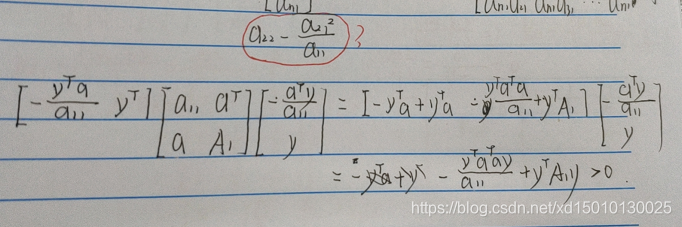 [a_{n1}] [a_{n1}a_{21} a_{n1}a_{31} ... a_{n1}
a_{22} - \frac{a_{21}^2}{a_{11}} ?
[-\frac{y^Ta}{a_{11}} y^T] [a_{11} a^T; a A_1] [-\frac{a^Ty}{a_{11}}; y] = [-y^Ta + y^Ta -\frac{y^Ta^Ta}{a_{11}} + y^TA_1] [-\frac{a^Ty}{a_{11}}; y]
= - + y^T - \frac{y^Ta^Tay}{a_{11}} + y^TA_1y > 0.
https://blog.csdn.net/xd15010130025